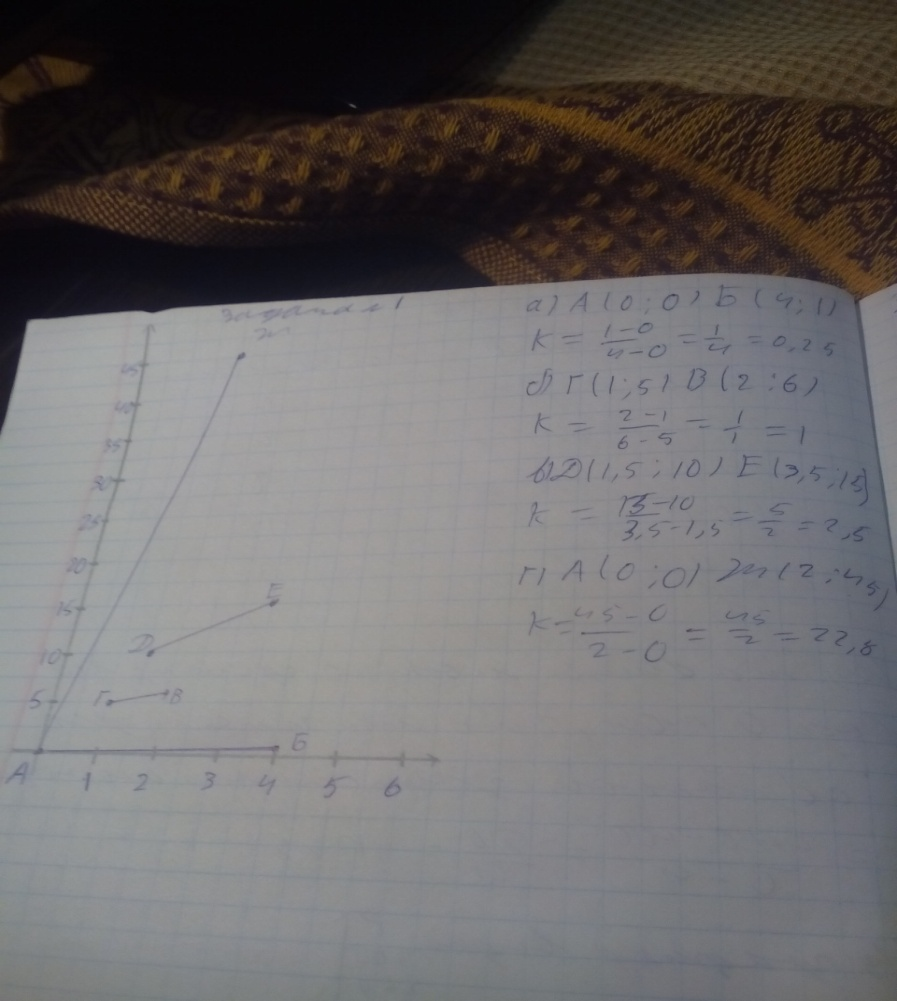 Задание 1
Ж
45
40
35
30
25
20
15
10
5
Е
D
Г В
А Б
1 2 3 4 5 6
а) А (0 ; 0) Б (4 ; 1)
K = 1-0/4-0 = 1/4 = 0,25
б) Г (1 ; 5) В (2 ; 6)
K = 2-1/6-5 = 1/1 = 1
в) D (1,5 ; 10) Е (3,5 ; 15)
K = 15-10/3,5-1,5 = 5/2 = 2,5
г) А (0 ; 0) Ж (2 ; 45)
K = 45-0/2-0 = 45/2 = 22,5